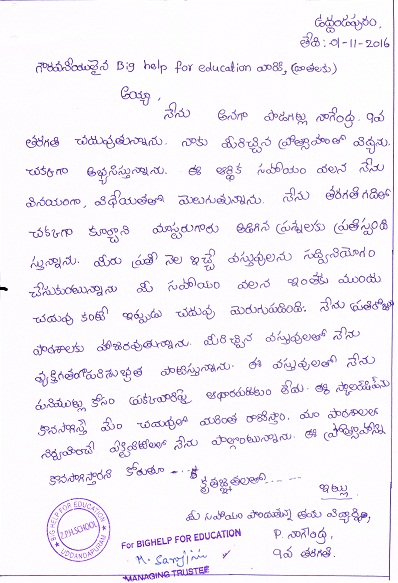 ఉద్దండపురం,
తేది: 01-11-2016
గౌరవనీయులైన Big help for education వారికి, (దాతలకు)
అయ్యా,
నేను అనగా పాడగట్ల నాగేంద్ర. 9వ
తరగతి చదువుతున్నాను. నాకు మీరిచ్చిన ప్రోత్సాహంతో విద్యను
చక్కగా అభ్యసిస్తున్నాను. ఈ ఆర్థిక సహాయం వలన నేను
వినయంగా, విధేయతతో మెలుగుతున్నాను. నేను తరగతి గదిలో
చక్కగా కూర్చొని మాస్టరుగారు అడిగిన ప్రశ్నలకు ప్రతిస్పంది
స్తున్నాను. మీరు ప్రతీ నెల ఇచ్చే వస్తువులను సద్వినియోగం
చేసుకుంటున్నాను మీ సహాయం వలన ఇంతకు ముందు
చదువు కంటే ఇప్పుడు చదువు మెరుగుపడింది. నేను ప్రతిరోజూ
పాఠశాలకు హాజరవుతున్నాను. మీరిచ్చిన వస్తువులతో నేను
వ్యక్తిగత పరిశుభ్రత పాటిస్తున్నాను. ఈ వస్తువులతో నేను
కోసం ఆధారపడటం లేదు. ఈ స్కాలర్‌షిప్‌ను
కొనసాగిస్తే మేం చదువులో మరింత రాణిస్తాం. మా పాఠశాలలో
నిర్వహించే నేను పాల్గొంటున్నాను. ఈ ప్రోత్సాహాన్ని
కొనసాగిస్తారని కోరుతూ ----
కృతజ్ఞతలతో.....
ఇట్లు
మీ సహాయం పొందుతున్న తమ విద్యార్థి,
P. నాగేంద్ర,
9వ తరగతి.
BIG HELP FOR EDUCATION
Z.P.H.SCHOOL
UDDANDAPURAM
For BIGHELP FOR EDUCATION
MANAGING TRUSTEE